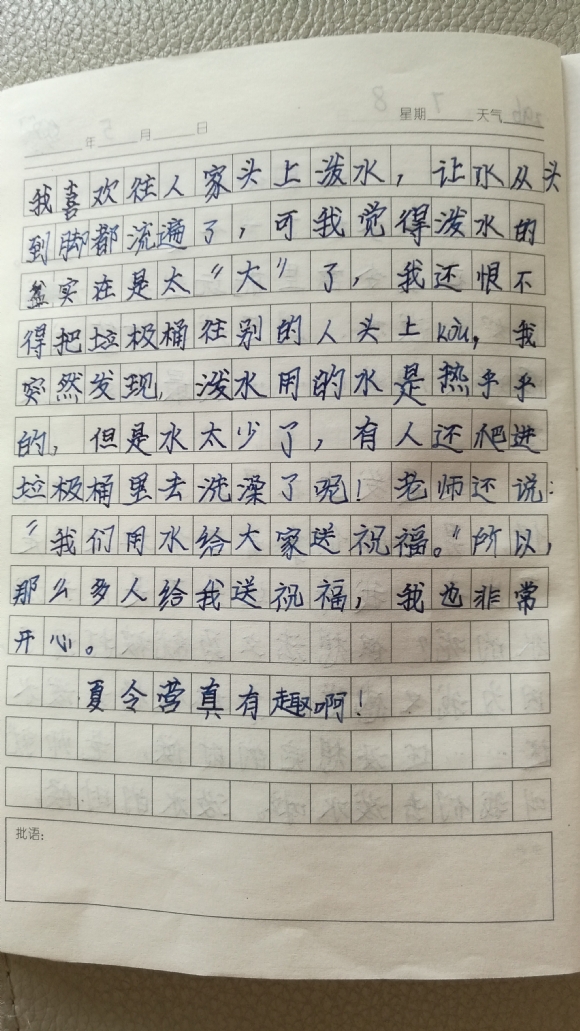 星期 天气
年 月 日
我喜欢往人家头上泼水，让水从头
到脚都流遍了，可我觉得泼水的
盆实在是太“大”了，我还恨不
得把垃极桶往别的人头上kòu，我
突然发现，泼水用的水是热乎乎
的，但是水太少了，有人还爬进
垃极桶里去洗澡了呢！老师还说：
“我们用水给大家送祝福。”所以，
那么多人给我送祝福，我也非常
开心。
夏令营真有趣啊！
批语：